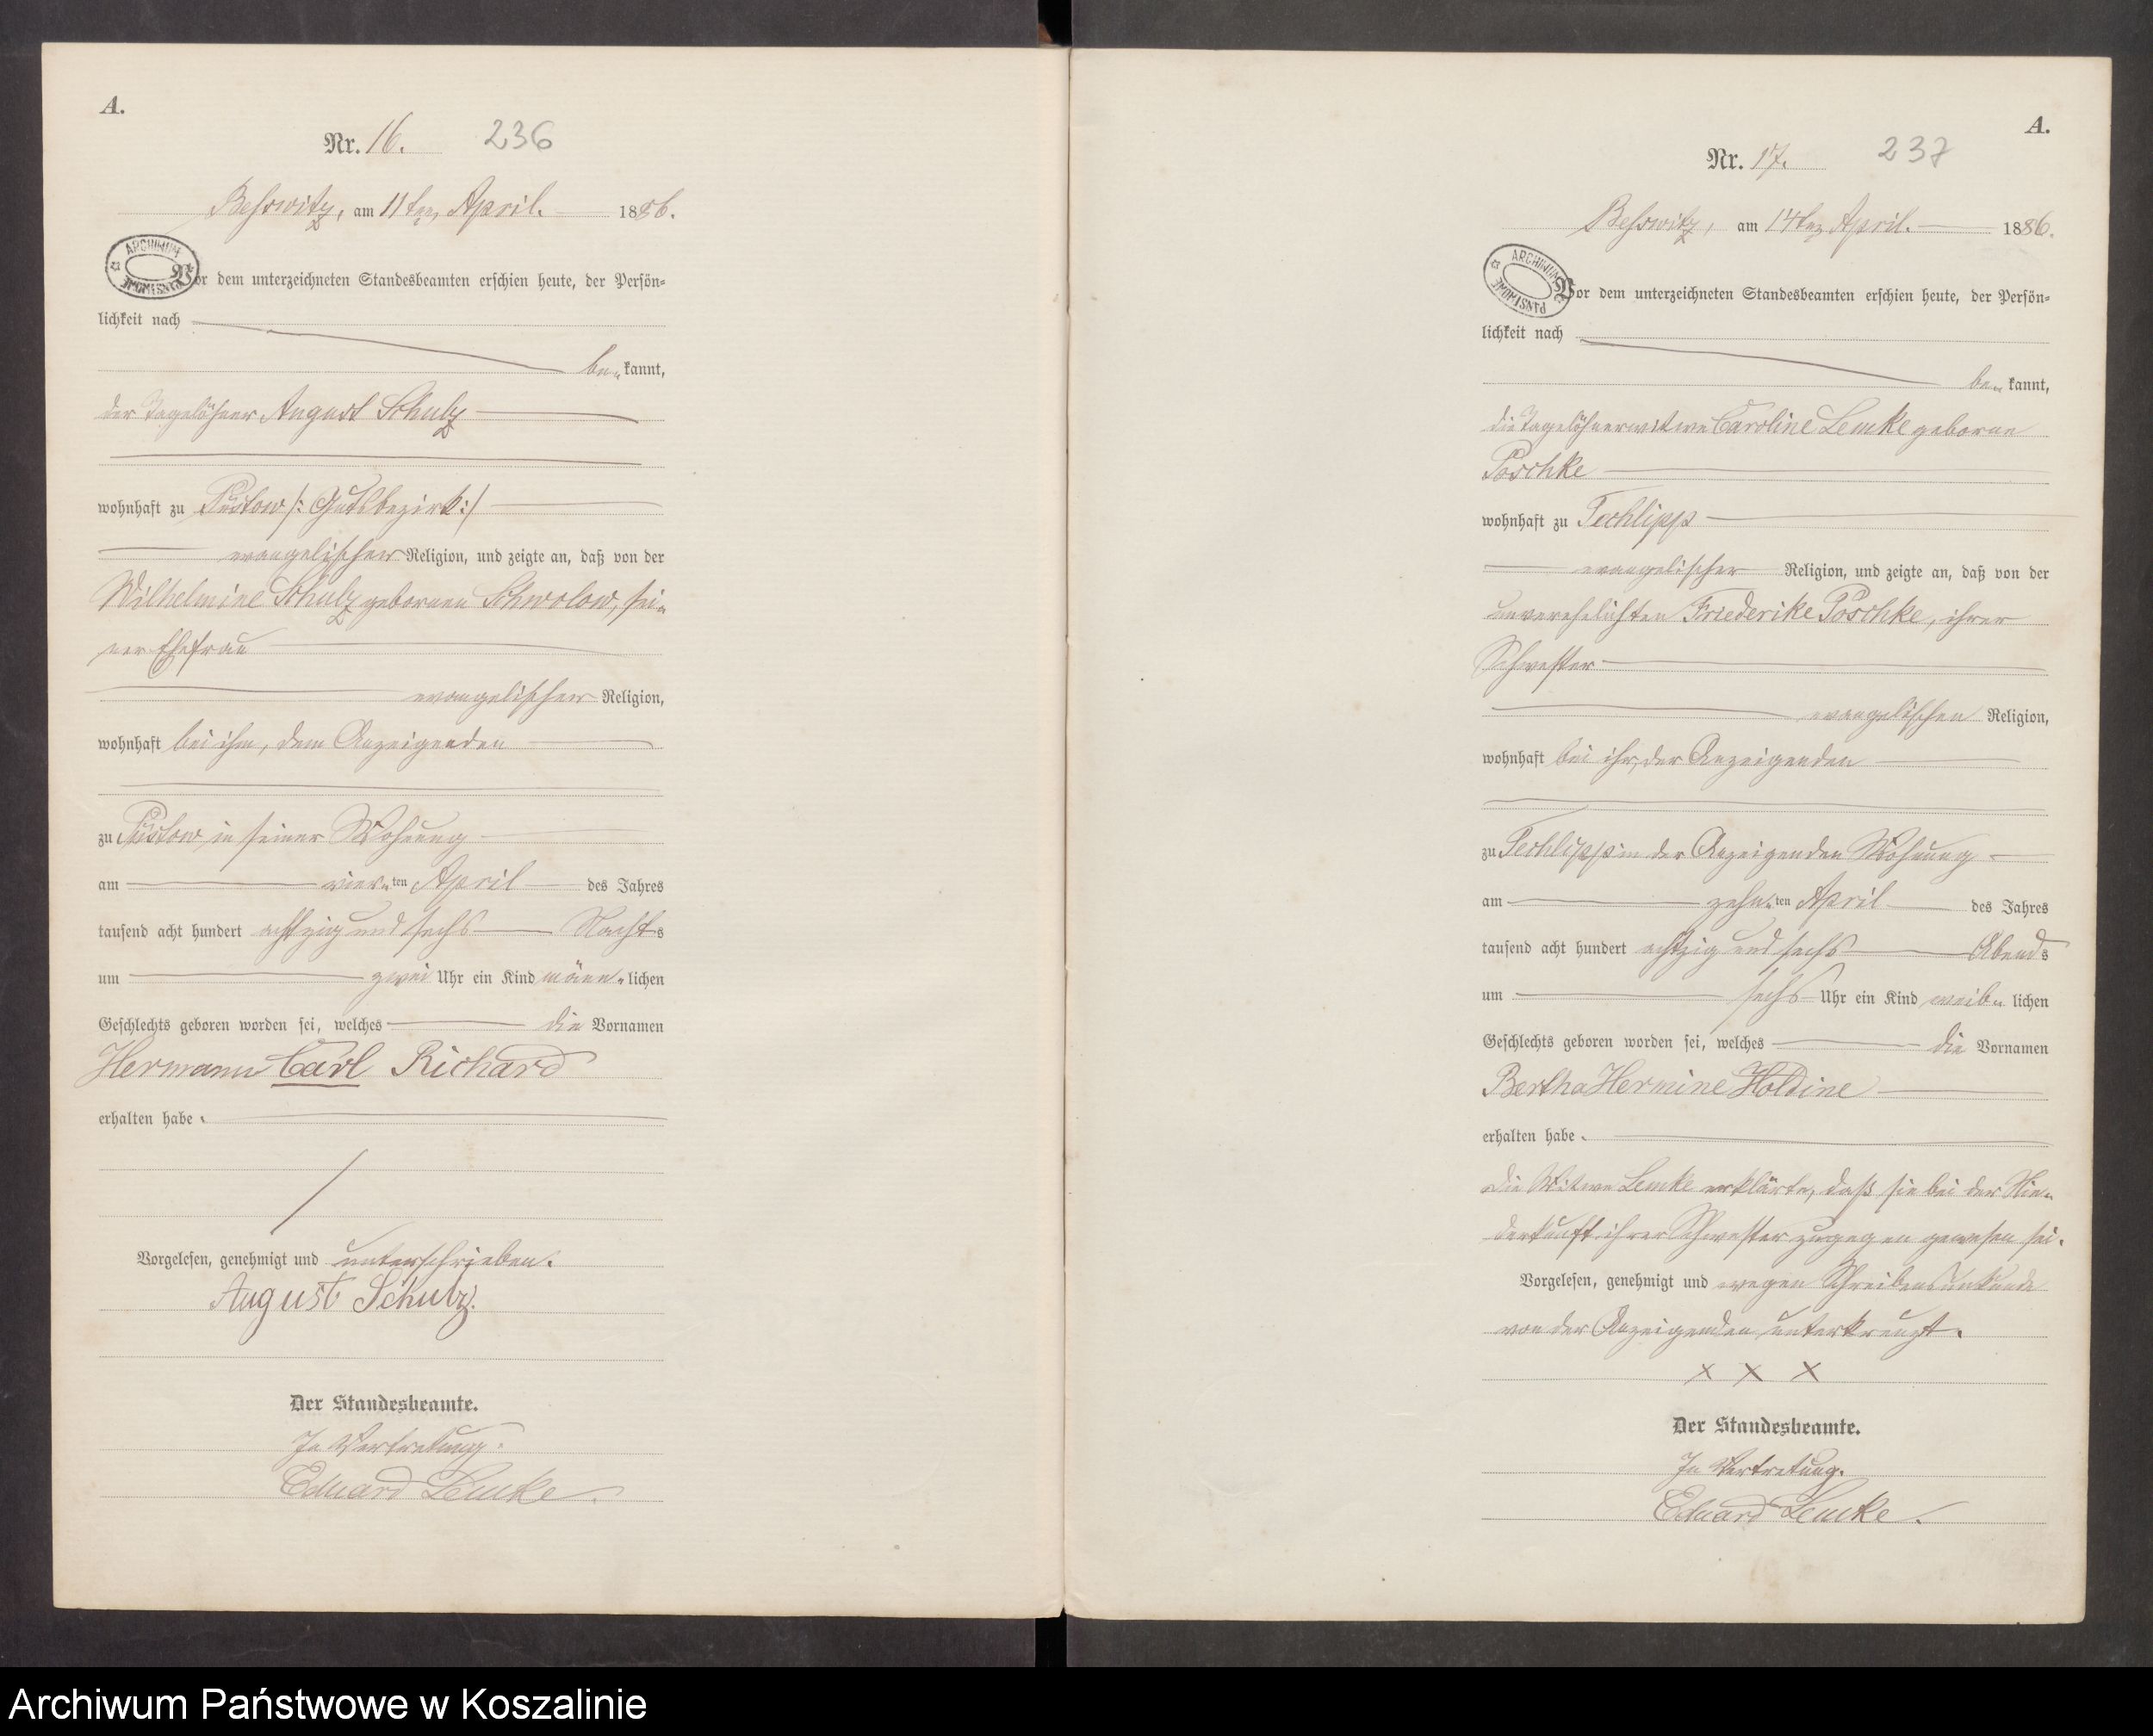 A.
Nr. 16. 236
Beßwitz, am 11ten April. 1886.
ARCHIWUM PAŃSTWOWE
Vor dem unterzeichneten Standesbeamten erschien heute, der Persön-
lichkeit nach
be kannt,
der Tagelöhner August Schulz
wohnhaft zu Püstow /: Gutsbezirk :/
evangelischer Religion, und zeigte an, daß von der
Wilhelmine Schulz gebornen Schwolow, sei-
ner Ehefrau
evangelischer Religion,
wohnhaft bei ihm, dem Anzeigenden
zu Püstow in seiner Wohnung
am vier ten April des Jahres
tausend acht hundert achtzig und sechs Nachts
um zwei Uhr ein Kind männ lichen
Geschlechts geboren worden sei, welches die Vornamen
Hermann Carl Richard
erhalten habe.
Vorgelesen, genehmigt und unterschrieben.
August Schulz.
Der Standesbeamte.
In Vertretung.
Eduard Lemke.
A.
Nr. 17. 237
Beßwitz, am 14ten April. 1886.
ARCHIWUM PAŃSTWOWE
Vor dem unterzeichneten Standesbeamten erschien heute, der Persön-
lichkeit nach
be kannt,
die Tagelöhnerwitwe Caroline Lemke geborne
Poschke
wohnhaft zu Techlipp
evangelischer Religion, und zeigte an, daß von der
unverehelichten Friederike Poschke, ihrer
Schwester
evangelischen Religion,
wohnhaft bei ihr, der Anzeigenden
zu Techlipp in der Anzeigenden Wohnung
am zehn ten April des Jahres
tausend acht hundert achtzig und sechs Abends
um sechs Uhr ein Kind weib lichen
Geschlechts geboren worden sei, welches die Vornamen
Bertha Hermine Holdine
erhalten habe.
Die Witwe Lemke erklärte, daß sie bei der Nie-
derkunft ihrer Schwester zugegen gewesen sei.
Vorgelesen, genehmigt und wegen Schreibensunkunde
von der Anzeigenden unterkreuzt.
X X X
Der Standesbeamte.
In Vertretung.
Eduard Lemke.
Archiwum Państwowe w Koszalinie